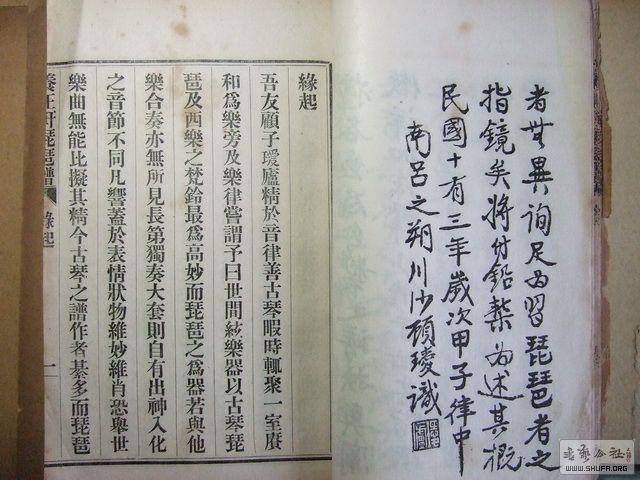 者無異詢足為習琵琶者之
指鏡矣將付鉛槧為述其概
民國十有三年歲次甲子律中
南呂之朔川沙顧瓊識
緣起
吾友顧子璦廬精於音律善古琴暇時輒聚一室賡
和為樂旁及樂律嘗謂予曰世間絃樂器以古琴琵
琶及西樂之梵鈴最為高妙而琵琶之為器若與他
樂合奏亦無所見長第獨奏大套則自有出神入化
之音節不同凡響蓋於表情狀物維妙維肖恐舉世
樂曲無能比擬其精今古琴之譜作者綦多而琵琶
養正軒琵琶譜
緣起
一
書藝公社
WWW.SHUFA.ORG